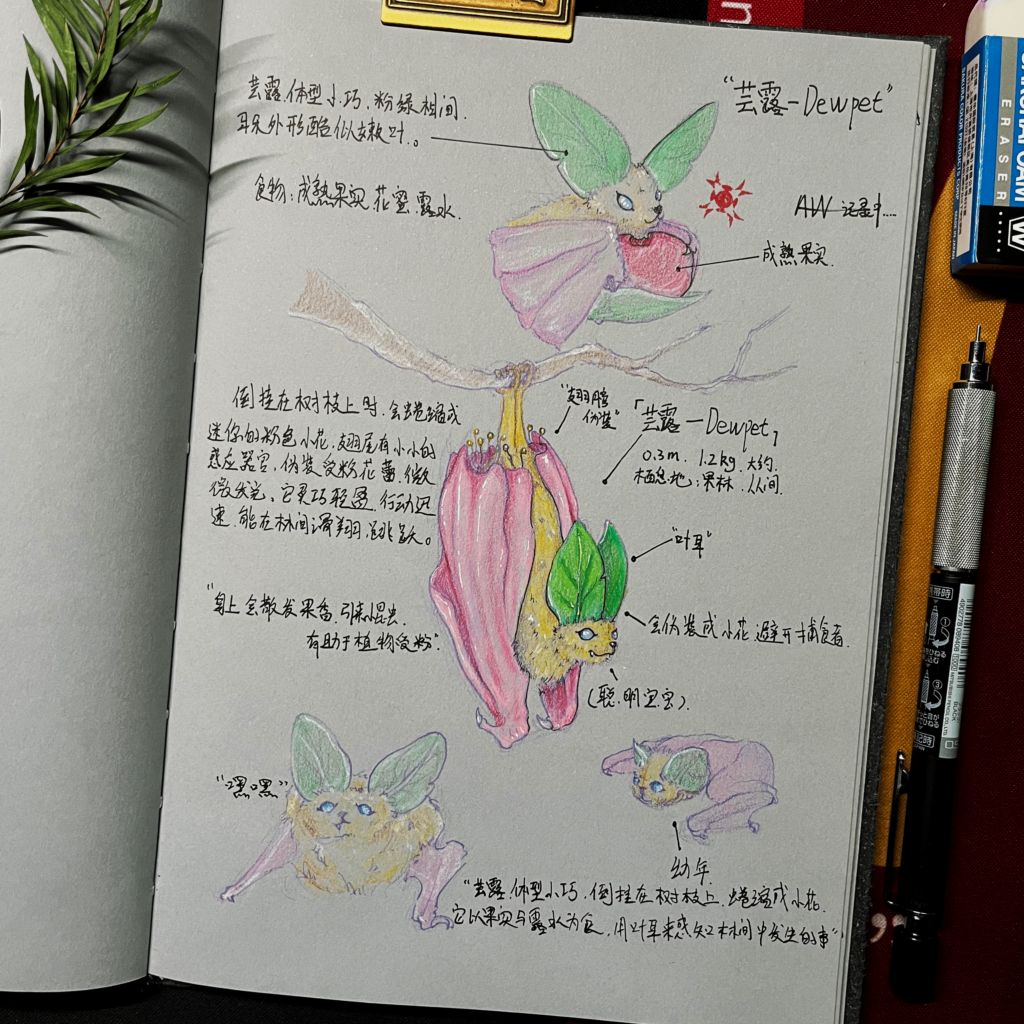 "芸露-Dewpet"
芸露.体型小巧.粉绿相间.
耳朵外形酷似嫩叶。
食物:成熟果实.花蜜.露水.
AW
成熟果实.
倒挂在树枝上时.会蜷缩成
迷你的粉色小花.翅尾有小小的
感应器官,伪装受粉花蕾.微
微发光。它灵巧轻盈.行动迅
速.能在林间滑翔.跳跃。
"翅膀
伪装"
「芸露-Dewpet」
0.3m. 1.2kg.大约.
栖息地:果林.丛间.
"叶耳"
"身上会散发果香.引来昆虫.
有助于植物受粉."
会伪装成小花避开捕食者.
(聪明宝宝).
"嘿嘿"
幼年.
"芸露.体型小巧.倒挂在树枝上.蜷缩成小花.
它以果实与露水为食.用叶耳来感知林间中发生的事"
SAKURA COLOR PRODUCTS CORP.
ERASER
W
BLACK